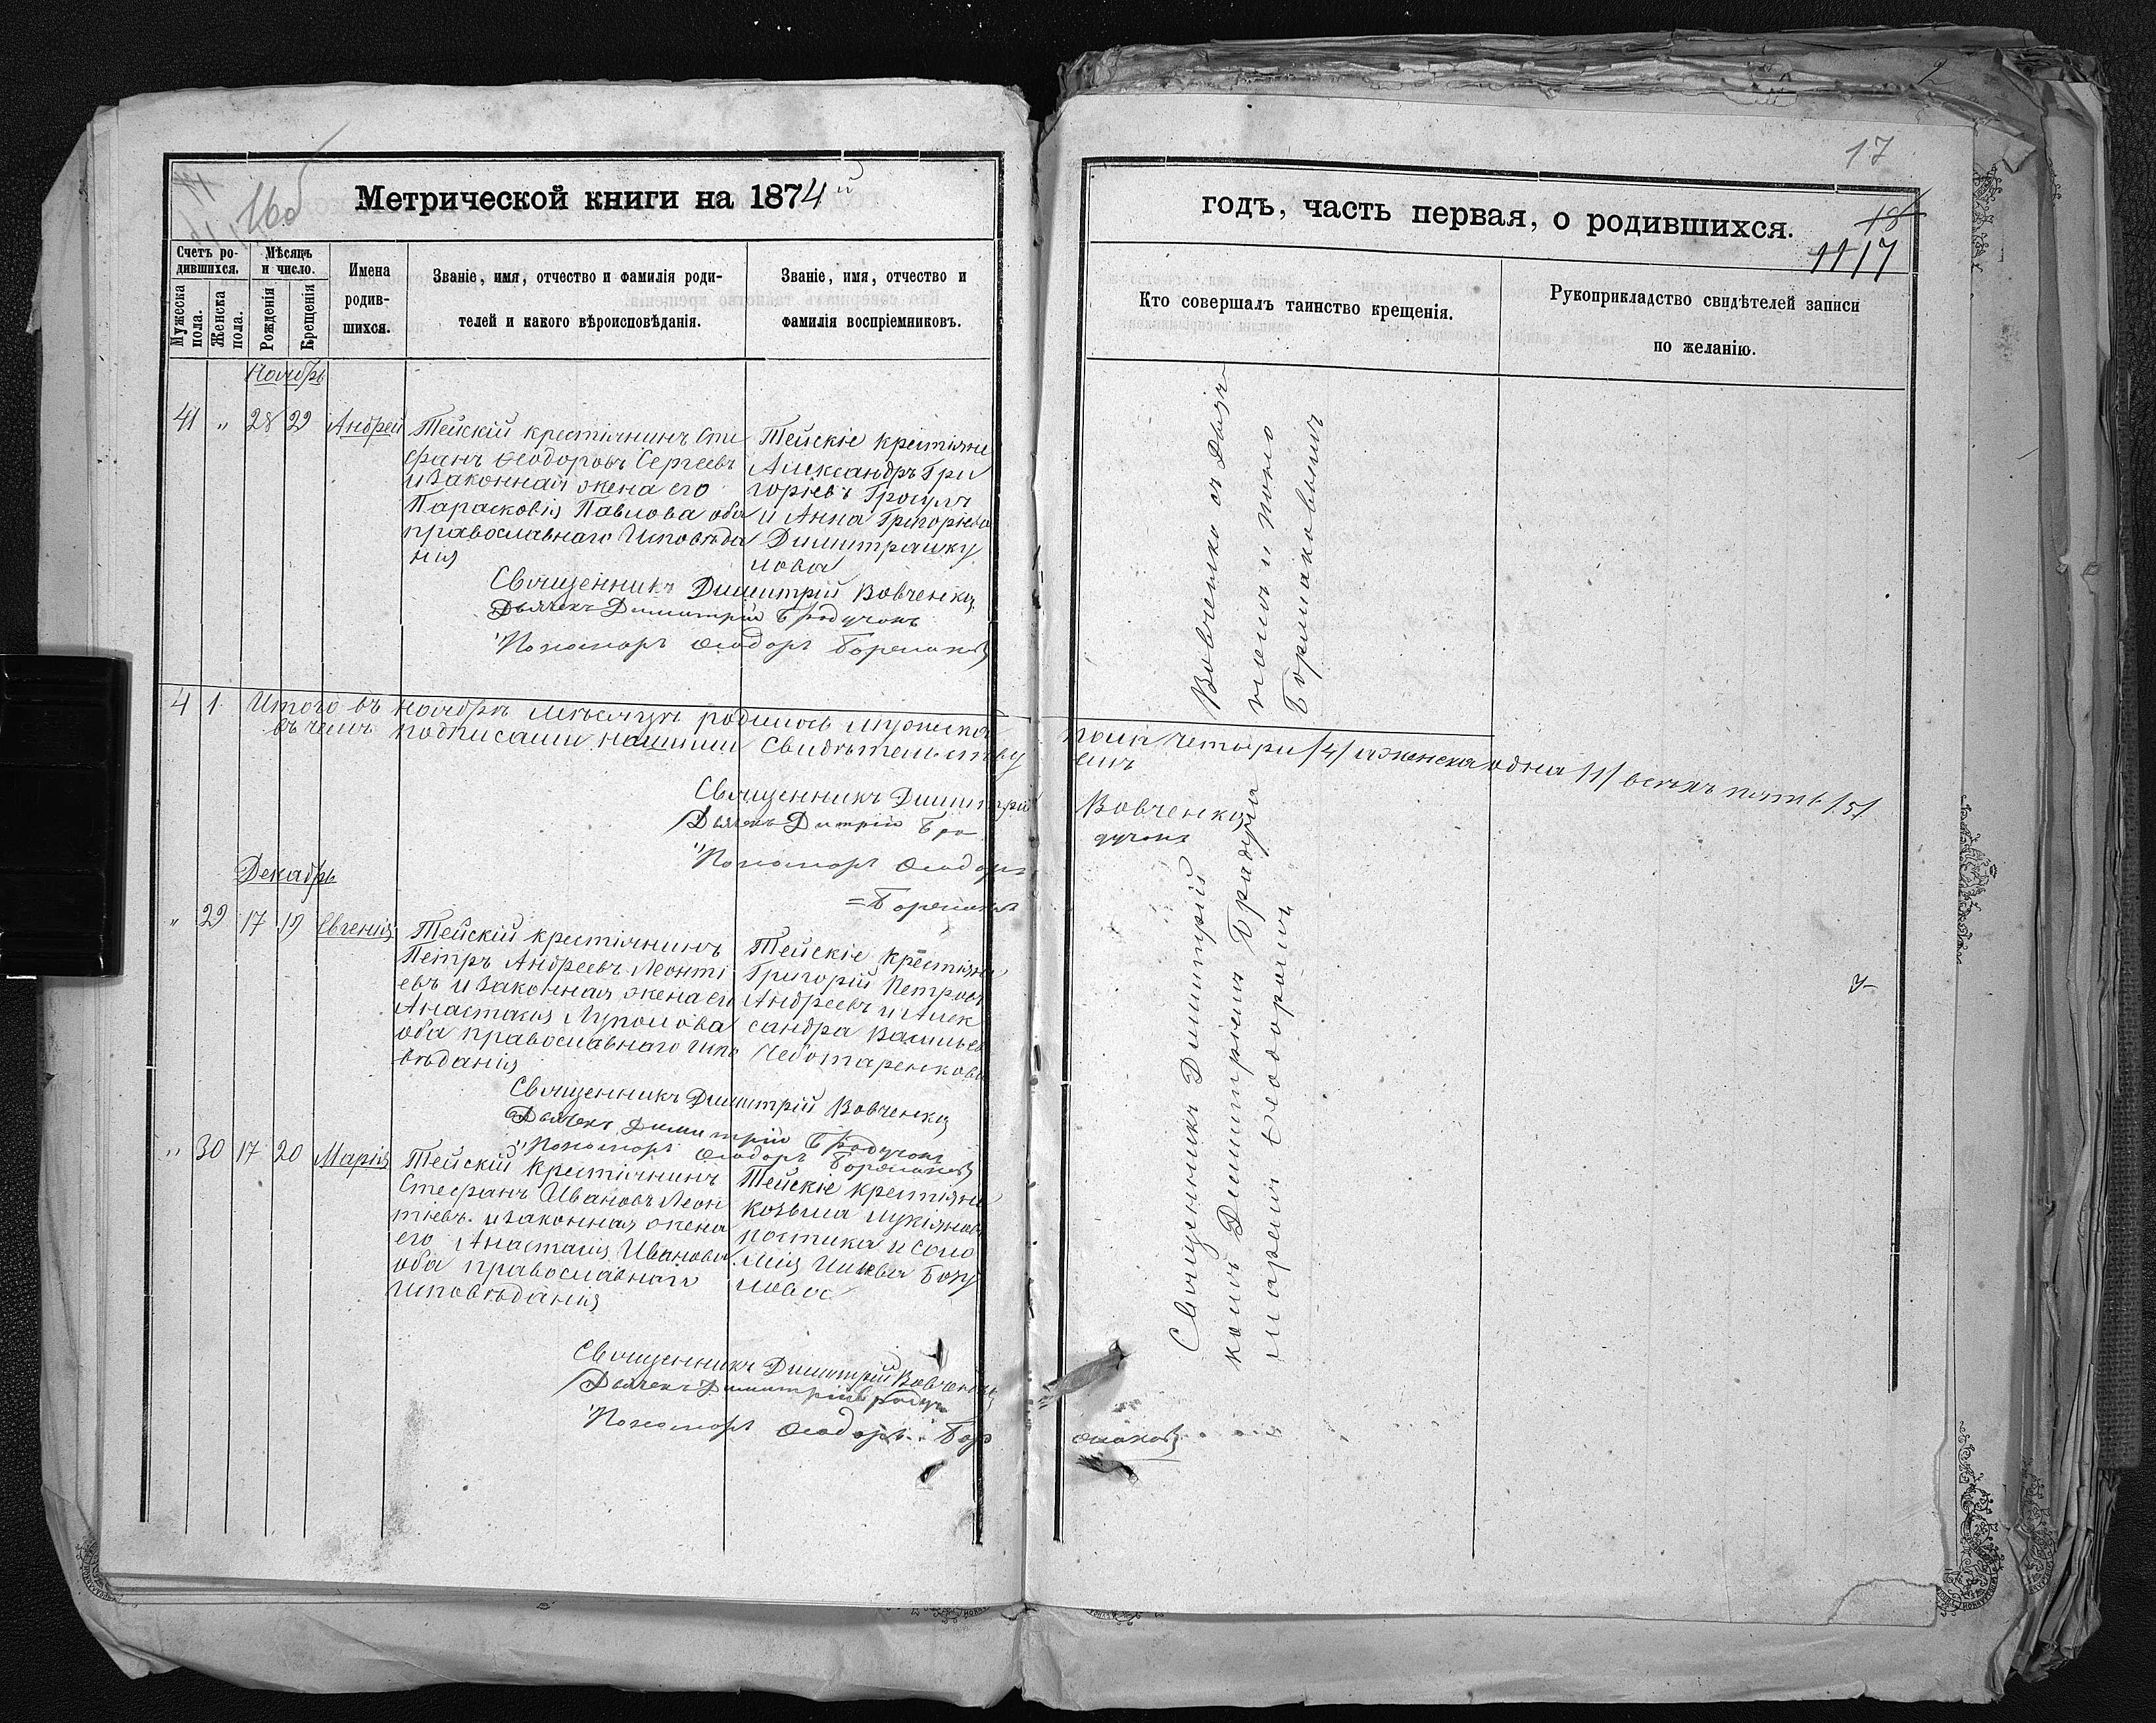 16об
Метрической книги на 1874й
Счетъ ро-
дившихся.
Мужеска
пола.
Женска
пола.
Мѣсяцъ
и число.
Рожденія
Крещенія
Имена
родив-
шихся.
Званіе, имя, отчество и фамилія роди-
телей и какого вѣроисповѣданія.
Званіе, имя, отчество и
фамилія воспріемниковъ.
Ноябрь
41 " 28 29 Андрей
Тейскій крестіянинъ Сте
фанъ Ѳеодоровъ Сергеевъ
и законная жена его
Парасковія Павлова оба
православнаго Исповѣда
нія
Тейскіе крестіяне
Александръ Гри
горіевъ Гросулъ
и Анна Григоріева
Димитрашку
лова
Священникъ Димитрій Вовченко
Дьячекъ Димитрій Брадучанъ
Пономарь Ѳеодоръ
4 1 Итого въ ноябрѣ мѣсяцѣ родилось мужеска
въ чемъ подписами нашими Свидѣтельству
Священникъ Димитрій
Дьячекъ Дмитрій Бра
Пономарь Ѳеодоръ
Декабрь
" 29 17 19 Евгенія
Тейскій крестіянинъ
Петръ Андреевъ Леонті
евъ и законная жена его
Анастасія Луполова
оба православнаго испо
вѣданія
Тейскіе крестіяне
Григорій Петровъ
Андреевъ и Алек
сандра Васильев
Чеботаренкова
Священникъ Димитрій Вовченко
Дьячекъ Димитрій Брадучанъ
Пономарь Ѳеодоръ
" 30 17 20 Марія
Тейскій крестіянинъ
Стефанъ Ивановъ Леон
тіевъ и законная жена
его Анастасія Иванова
оба православнаго
исповѣданія
Тейскіе крестіяне
Козьма Лукіяновъ
и Соло
мія
лова
Священникъ Димитрій Вовченко
Дьячекъ Димитрій Брадуч
Пономарь Ѳеодоръ Бор
17
18
17
годъ, часть первая, о родившихся.
Кто совершалъ таинство крещенія.
Рукоприкладство свидѣтелей записи
по желанію.
Вовченко съ Дьяч
комъ и поно
пола четыри /4/ и женска одна /1/ всѣхъ пять /5/
емъ
Вовченко
дучанъ
Священникъ Димитрій
комъ Димитріемъ Брадуча
маремъ Ѳеодоромъ